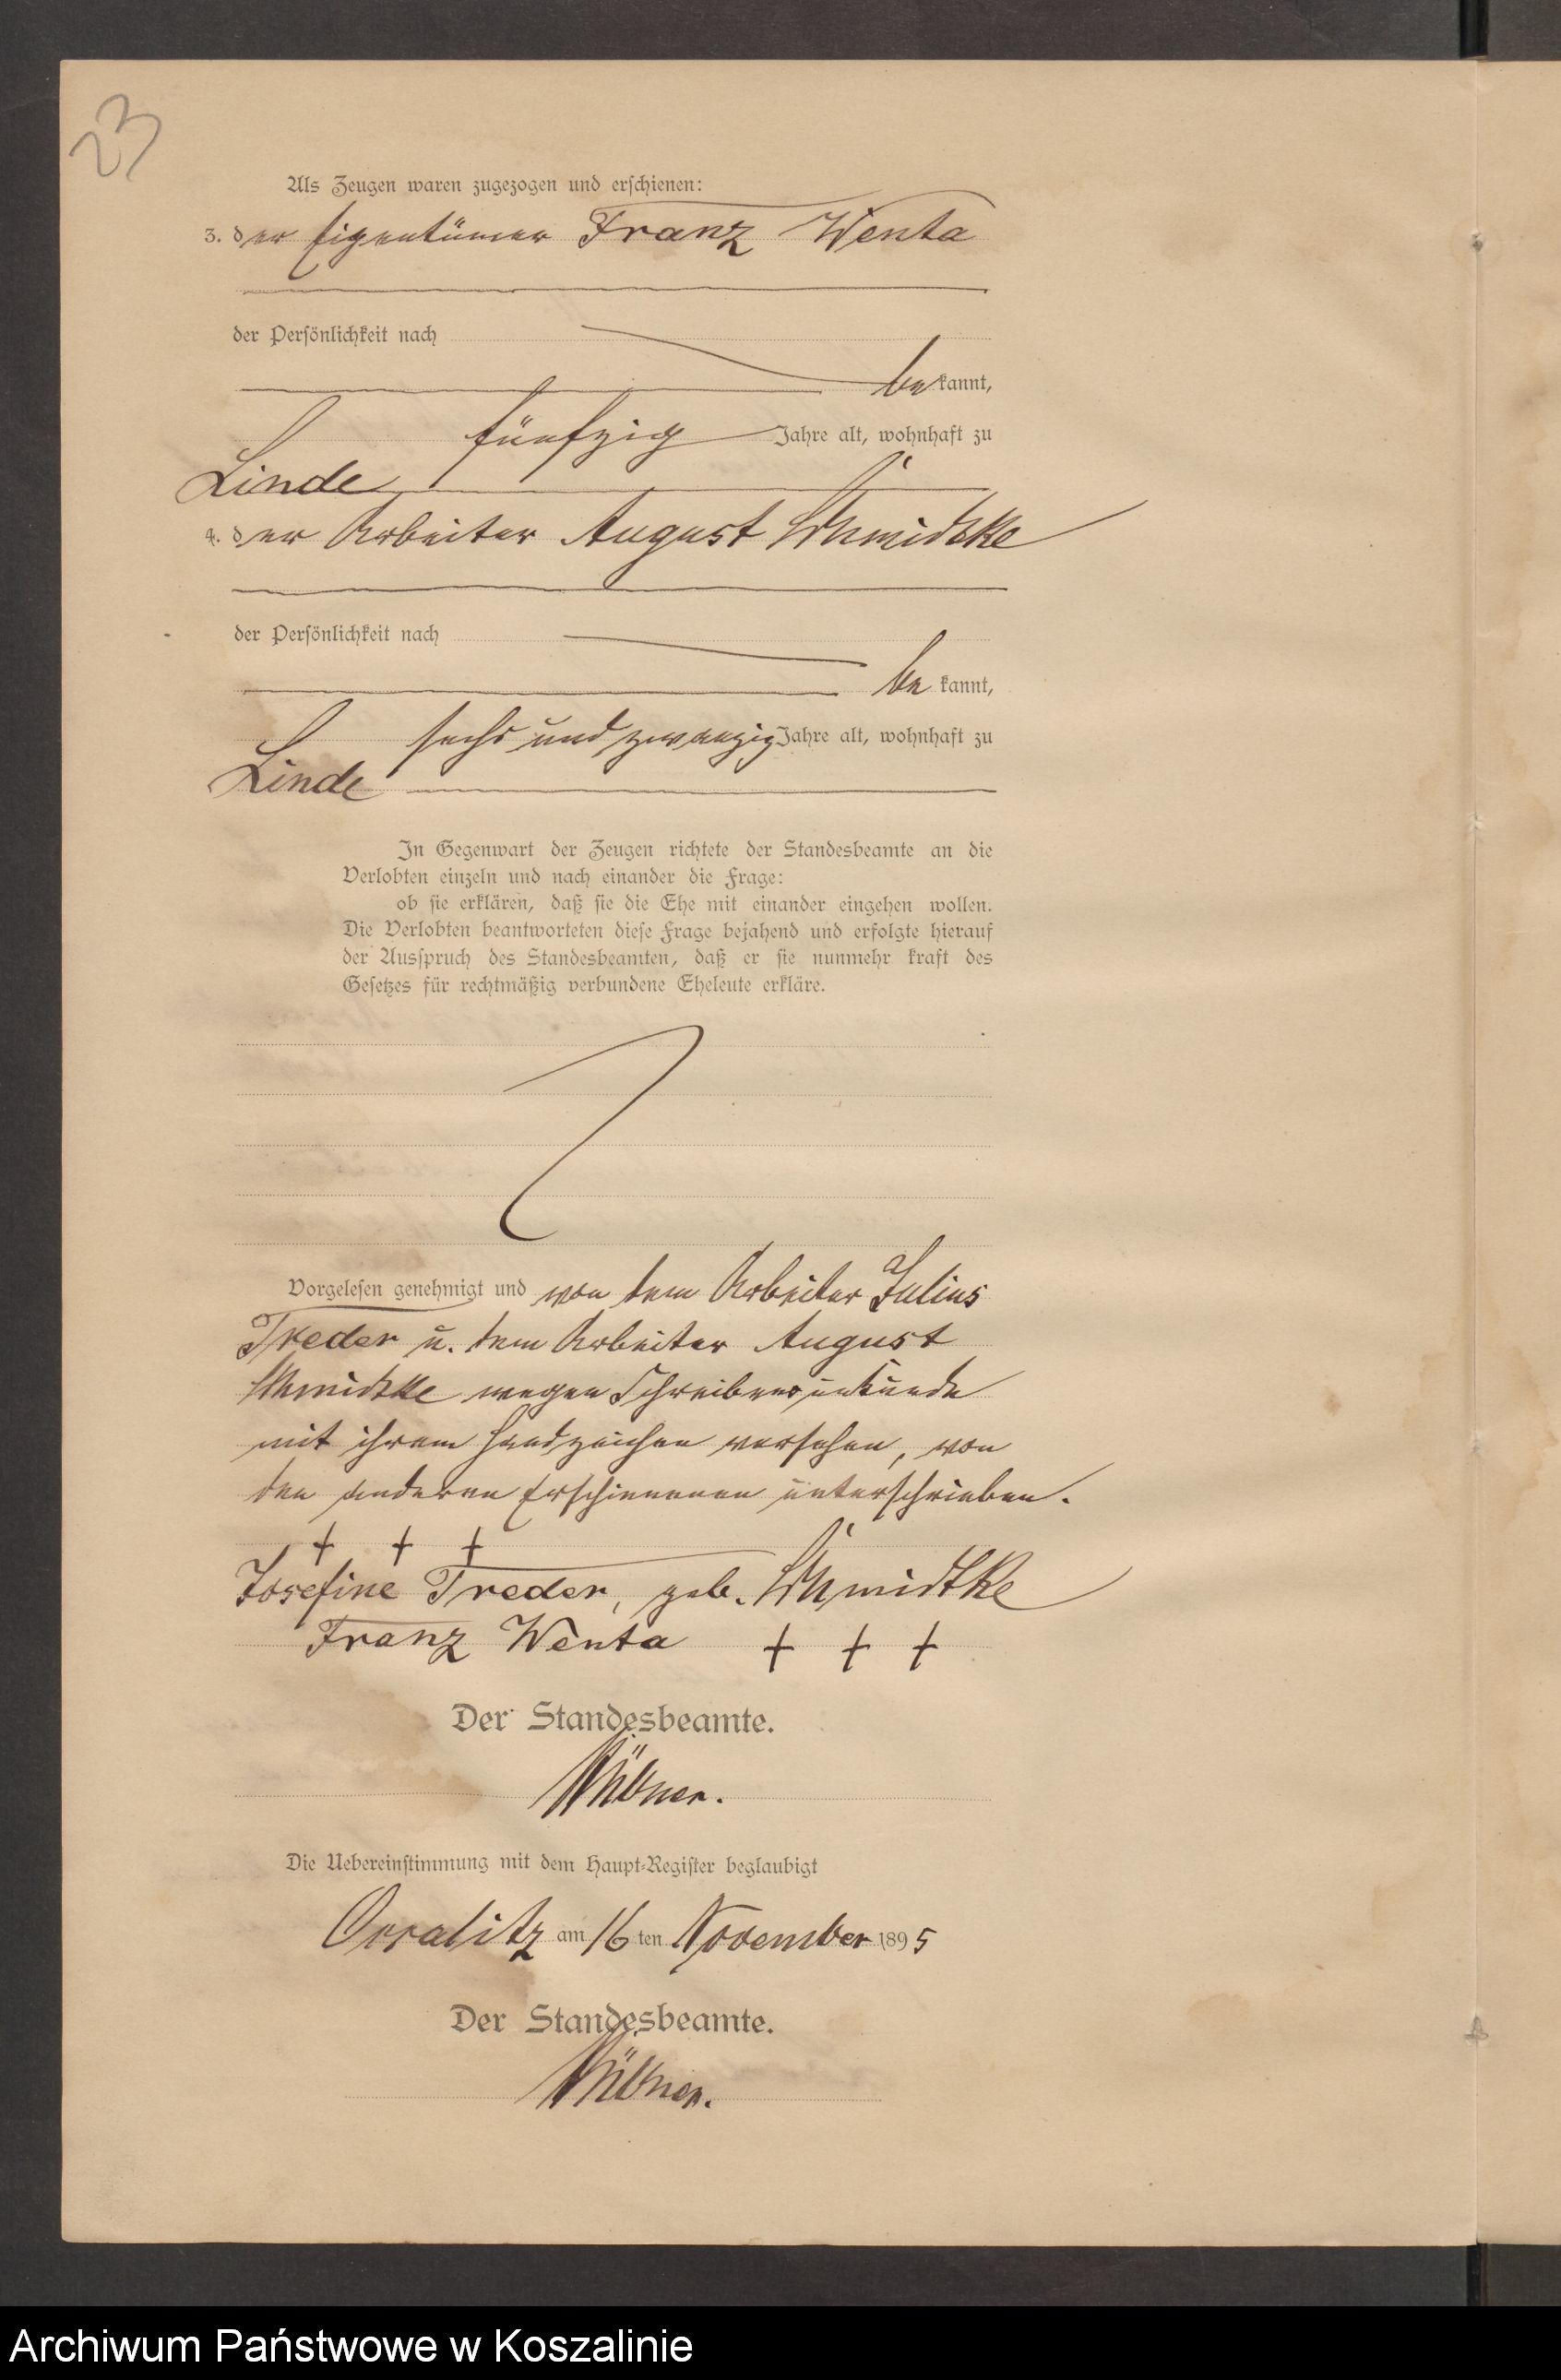 23
Als Zeugen waren zugezogen und erschienen:
3. der Eigentümer Franz Wenta
der Persönlichkeit nach
be kannt,
fünfzig Jahre alt, wohnhaft zu
Linde
4. der Arbeiter August Schmidtke
der Persönlichkeit nach
be kannt,
sechs und zwanzig Jahre alt, wohnhaft zu
Linde
In Gegenwart der Zeugen richtete der Standesbeamte an die
Verlobten einzeln und nach einander die Frage:
ob sie erklären, daß sie die Ehe mit einander eingehen wollen.
Die Verlobten beantworteten diese Frage bejahend und erfolgte hierauf
der Ausspruch des Standesbeamten, daß er sie nunmehr kraft des
Gesetzes für rechtmäßig verbundene Eheleute erkläre.
Vorgelesen genehmigt und von dem Arbeiter Julius
Treder u. dem Arbeiter August
Schmidtke wegen Schreibensunkunde
mit ihrem Handzeichen versehen, von
den anderen Erschienenen unterschrieben.
+ + +
Josefine Treder, geb. Schmidtke
Franz Wenta + + +
Der Standesbeamte.
Die Uebereinstimmung mit dem Haupt-Register beglaubigt
am 16 ten November 1895
Der Standesbeamte.
Archiwum Państwowe w Koszalinie